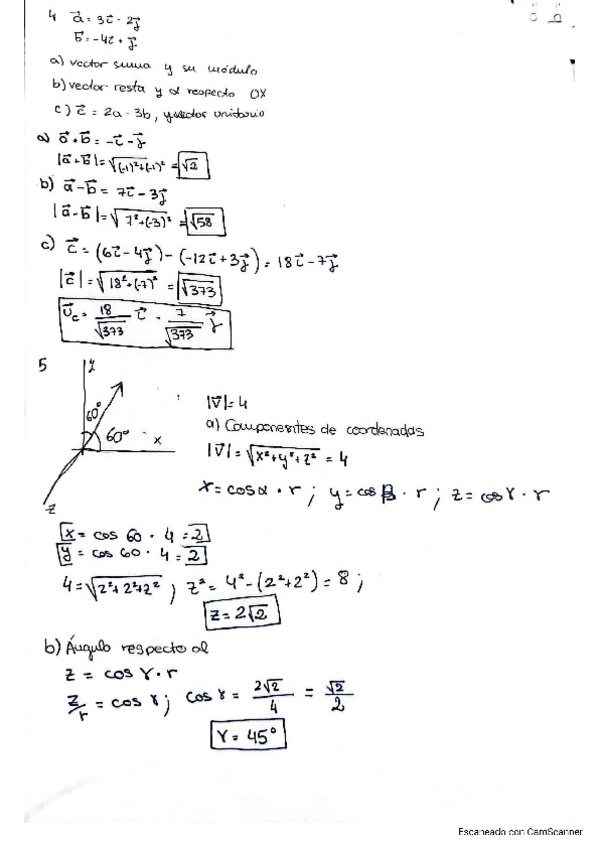 4 a⃗ = 3i⃗ - 2j⃗
b⃗ = -4i⃗ + j⃗
a) vector suma y su módulo
b) vector resta y al respecto OX
c) c⃗ = 2a - 3b, y vector unitario
a) a⃗+b⃗ = -i⃗ - j⃗
|a⃗+b⃗| = √(-1)²+(-1)² = √2
b) a⃗-b⃗ = 7i⃗ - 3j⃗
|a⃗-b⃗| = √7²+(-3)² = √58
c) c⃗ = (6i⃗-4j⃗) - (-12i⃗+3j⃗) = 18i⃗ - 7j⃗
|c⃗| = √18²+(-7)² = √373
u⃗c = 18/√373 i⃗ - 7/√373 j⃗
5
y
60°
60°
x
z
|v⃗| = 4
a) Componentes de coordenadas
|v⃗| = √x²+y²+z² = 4
x = cosα · r ; y = cosβ · r ; z = cosγ · r
x = cos 60 · 4 = 2
y = cos 60 · 4 = 2
4 = √2²+2²+z² ; z² = 4² - (2²+2²) = 8 ;
z = 2√2
b) Ángulo respecto al
z = cosγ · r
z/r = cosγ ; cosγ = 2√2/4 = √2/2
γ = 45°
Escaneado con CamScanner